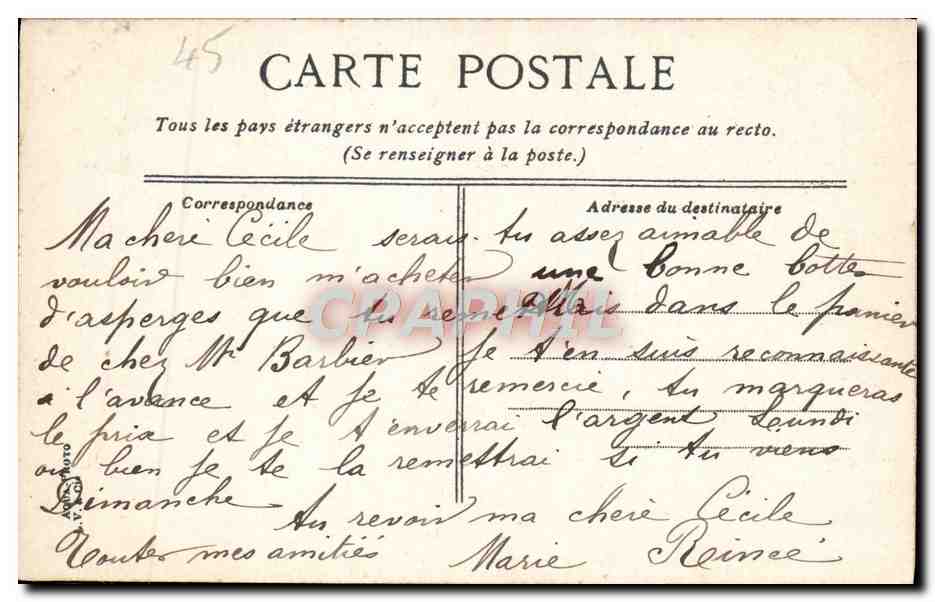 45
CARTE POSTALE
Tous les pays étrangers n'acceptent pas la correspondance au recto.
(Se renseigner à la poste.)
Correspondance
Adresse du destinataire
Ma chère Cécile serais-tu assez aimable de
vouloir bien m'acheter une bonne botte
d'asperges que tu remettrais dans le panier
de chez Mr Barbier je t'en suis reconnaissante
à l'avance et je te remercie, tu marqueras
le prix et je t'enverrai l'argent Lundi
ou bien je te la remettrai si tu viens
Dimanche
Au revoir ma chère Cécile
Toutes mes amitiés Marie Reincé
CPAPHIL